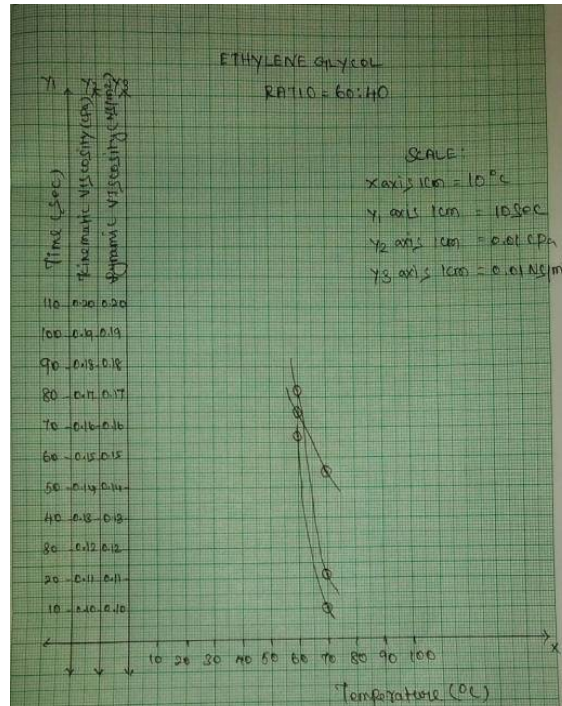 ETHYLENE GLYCOL
RATIO = 60:40
SCALE:
x axis 1cm = 10°C
Y1 axis 1cm = 10Sec
Y2 axis 1cm = 0.01 CPa
Y3 axis 1cm = 0.01 NS/m
Y1
Time (Sec)
Kinematic Viscosity (CPa)
Dynamic Viscosity (NS/m2)
110 0.20 0.20
100 0.19 0.19
90 0.18 0.18
80 0.17 0.17
70 0.16 0.16
60 0.15 0.15
50 0.14 0.14
40 0.13 0.13
30 0.12 0.12
20 0.11 0.11
10 0.10 0.10
10 20 30 40 50 60 70 80 90 100
X
Temperature (°C)